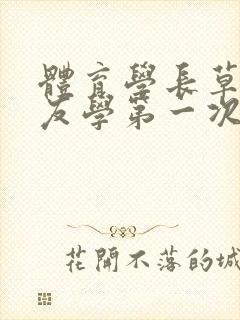 體育學長草
友學第一次
花開不落的城